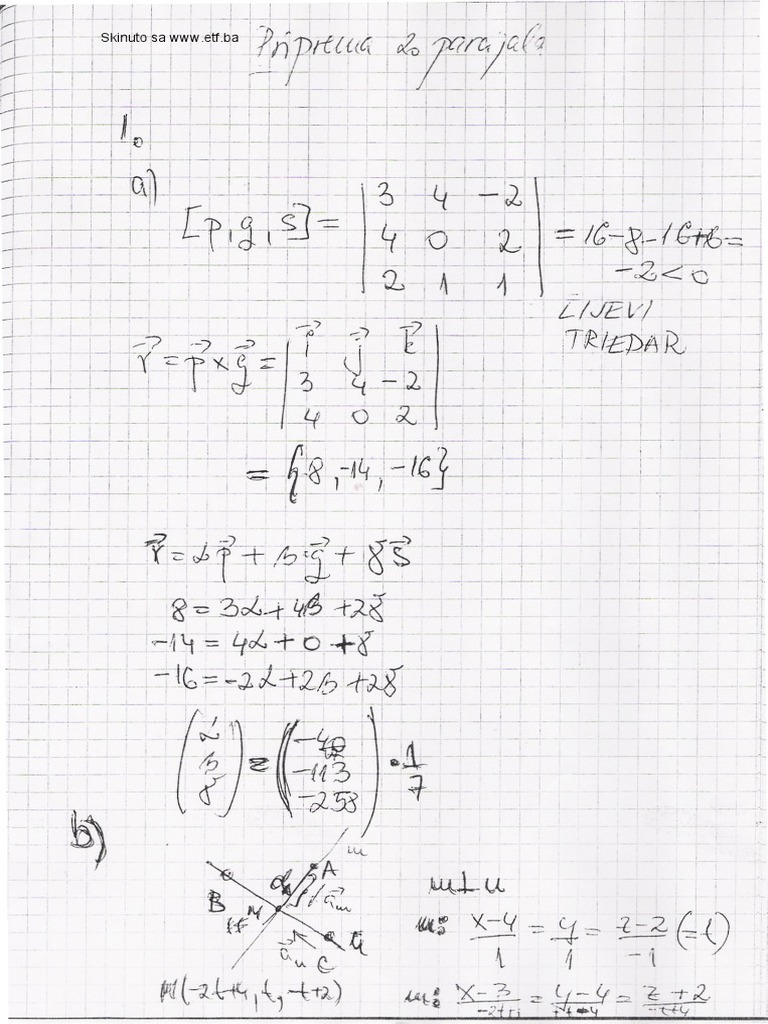 Skinuto sa www.etf.ba
Priprema 2o parcijala
1.
a)
[p,g,s] = | 3 4 -2 |
| 4 0 2 | = 16-8-16+6=
| 2 1 1 | -2<0
LIJEVI
TRIEDAR
r⃗ = p⃗ × g⃗ = | i⃗ j⃗ k⃗ |
| 3 4 -2 |
| 4 0 2 |
= {8, -14, -16}
r⃗ = αp⃗ + βg⃗ + γs⃗
8 = 3α + 4β + 2γ
-14 = 4α + 0 + γ
-16 = -2α + 2β + 2γ
(α β γ) = (-40 -113 -258) · 1/7
b)
m
A
B
M
a⃗m
a⃗n
C
m⊥n
m: (x-4)/1 = y/1 = (z-2)/-1 (=t)
M(-2t+4, t, -t+2)
n: (x-3)/ = (y-4)/ = (z+2)/